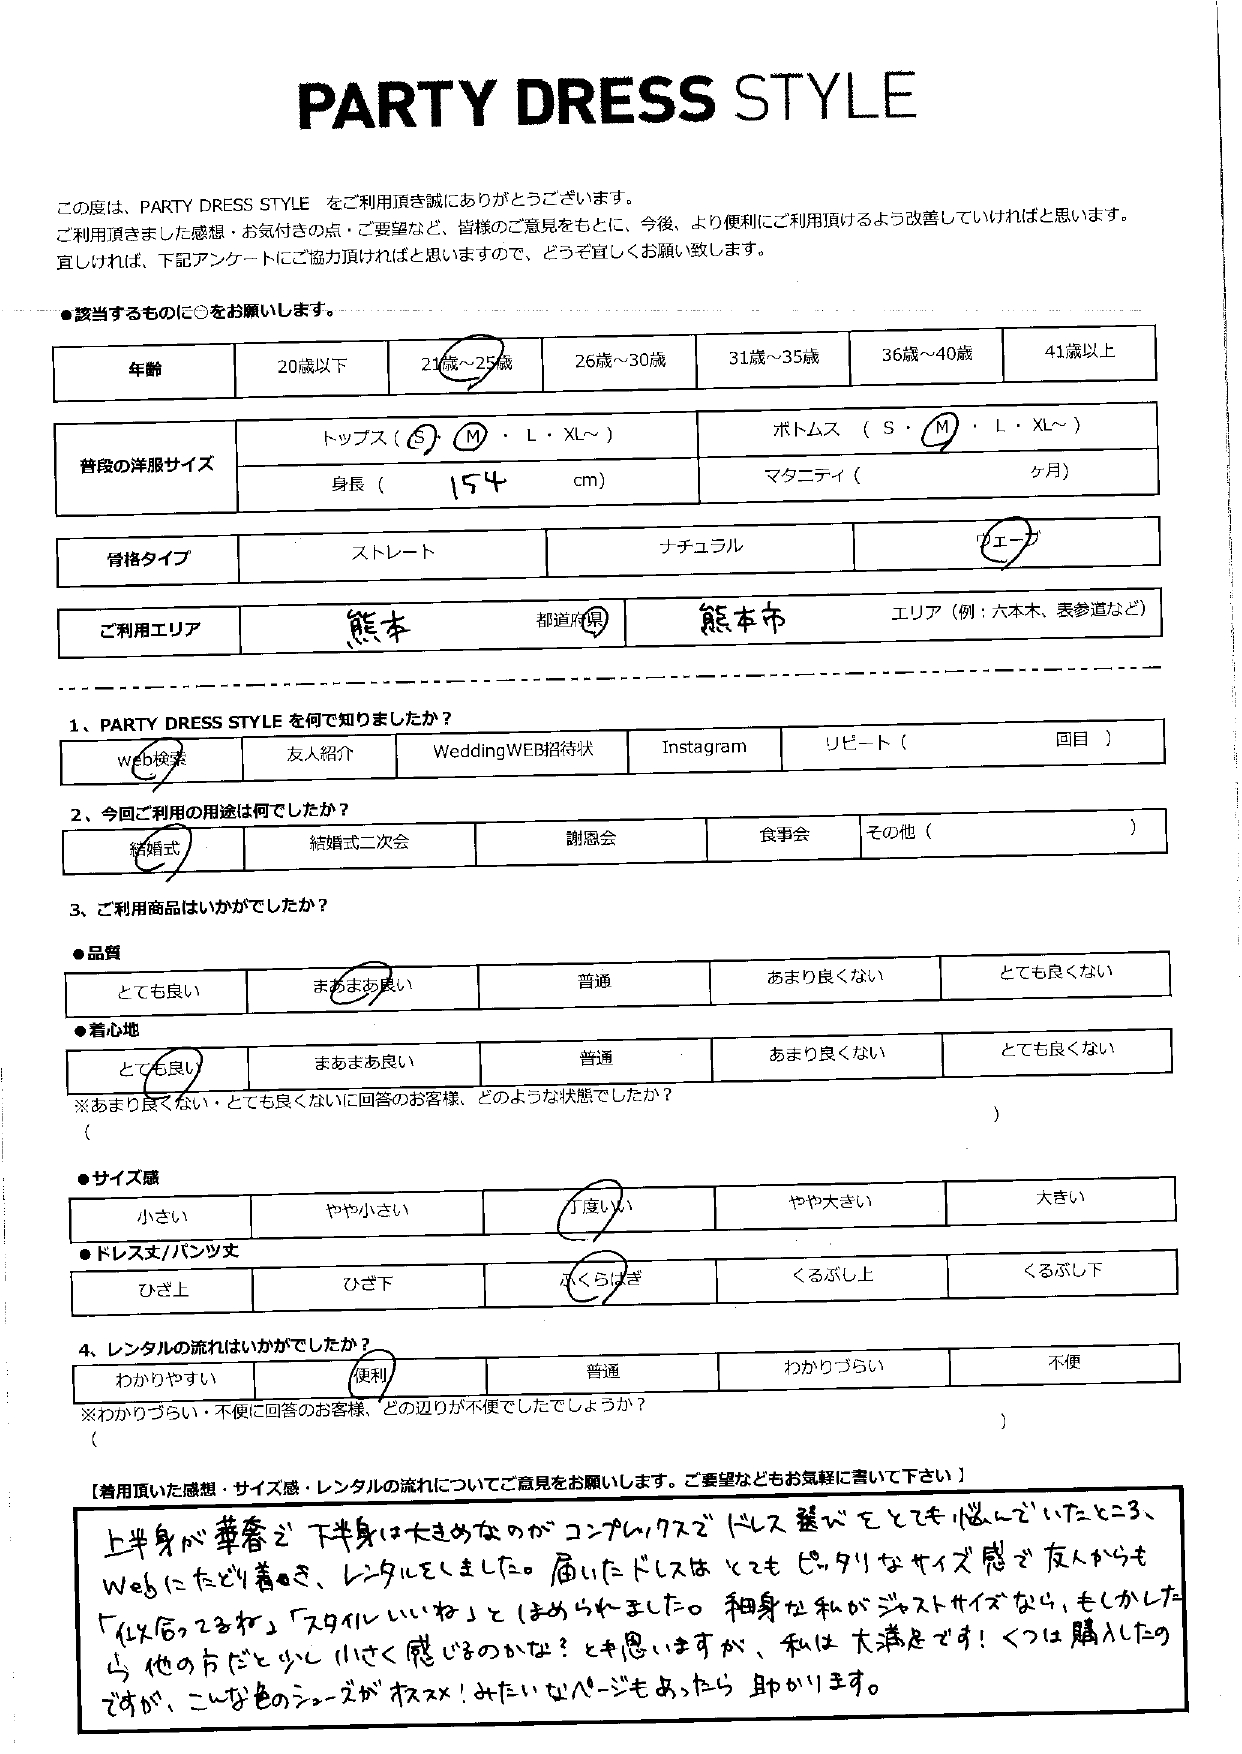 PARTY DRESS STYLE
この度は、PARTY DRESS STYLE をご利用頂き誠にありがとうございます。
ご利用頂きました感想・お気付きの点・ご要望など、皆様のご意見をもとに、今後、より便利にご利用頂けるよう改善していければと思います。
宜しければ、下記アンケートにご協力頂ければと思いますので、どうぞ宜しくお願い致します。
●該当するものに○をお願いします。
年齢 20歳以下 21歳～25歳 26歳～30歳 31歳～35歳 36歳～40歳 41歳以上
普段の洋服サイズ
トップス ( S ・ M ・ L ・ XL～ ) ボトムス ( S ・ M ・ L ・ XL～ )
身長 ( 154 cm) マタニティ ( ヶ月)
骨格タイプ ストレート ナチュラル ウェーブ
ご利用エリア 熊本 都道府県 熊本市 エリア（例：六本木、表参道など）
1、PARTY DRESS STYLE を何で知りましたか？
Web検索 友人紹介 WeddingWEB招待状 Instagram リピート ( 回目 )
2、今回ご利用の用途は何でしたか？
結婚式 結婚式二次会 謝恩会 食事会 その他 ( )
3、ご利用商品はいかがでしたか？
●品質
とても良い まあまあ良い 普通 あまり良くない とても良くない
●着心地
とても良い まあまあ良い 普通 あまり良くない とても良くない
※あまり良くない・とても良くないに回答のお客様、どのような状態でしたか？
( )
●サイズ感
小さい やや小さい 丁度いい やや大きい 大きい
●ドレス丈/パンツ丈
ひざ上 ひざ下 ふくらはぎ くるぶし上 くるぶし下
4、レンタルの流れはいかがでしたか？
わかりやすい 便利 普通 わかりづらい 不便
※わかりづらい・不便に回答のお客様、どの辺りが不便でしたでしょうか？
( )
【着用頂いた感想・サイズ感・レンタルの流れについてご意見をお願いします。ご要望などもお気軽に書いて下さい 】
上半身が華奢で 下半身は大きめなのがコンプレックスで ドレス選びをとても悩んでいたところ、
Webにたどり着き、レンタルをしました。届いたドレスはとてもピッタリなサイズ感で友人からも
「似合ってるね」「スタイルいいね」とほめられました。細身な私がジャストサイズなら、もしかした
ら他の方だと少し小さく感じるのかな？とも思いますが、私は大満足です！くつは購入したの
ですが、こんな色のシューズがオススメ！みたいなページもあったら助かります。